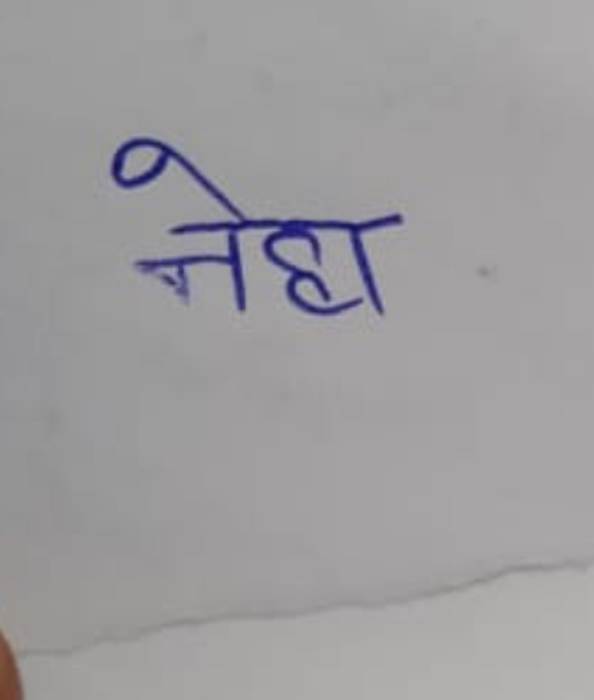 नेहा